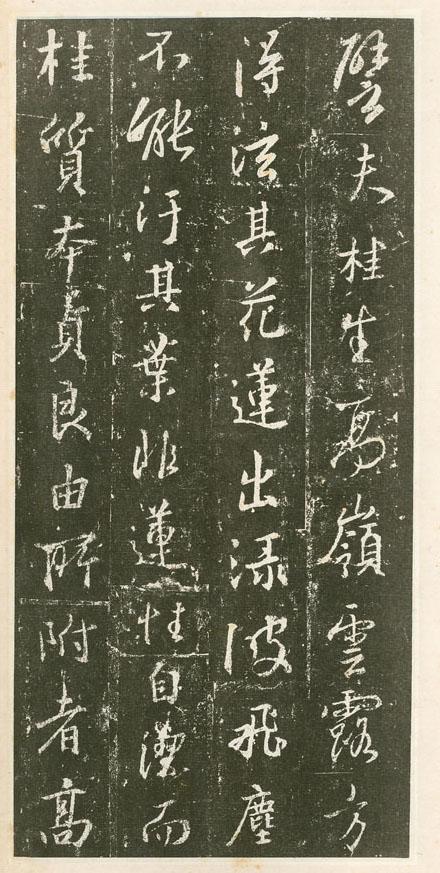 譬夫桂生高嶺雲露方
得泫其花蓮出淥波飛塵
不能汙其葉非蓮性自潔而
桂質本貞良由所附者高